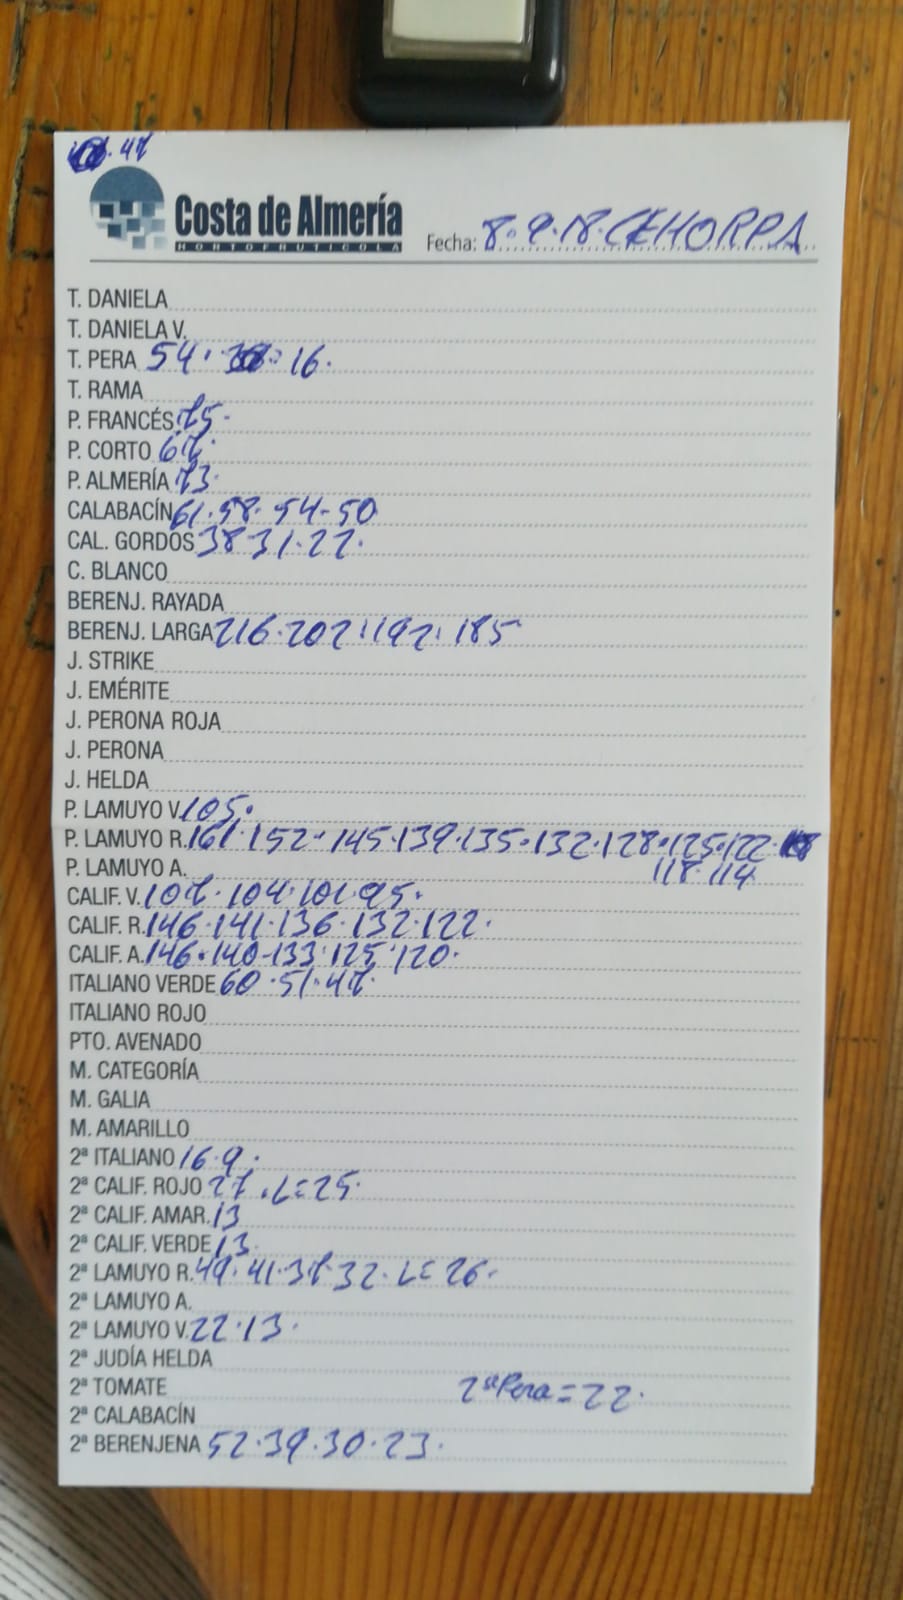 . 47
Costa de Almería
HORTOFRUTICOLA
Fecha: 8.9.18. CEHORPA
T. DANIELA
T. DANIELA V.
T. PERA 54. 16.
T. RAMA
P. FRANCÉS 75.
P. CORTO 67.
P. ALMERÍA 73.
CALABACÍN 61.58.54-50
CAL. GORDOS 38 31.22.
C. BLANCO
BERENJ. RAYADA
BERENJ. LARGA 216.202.192.185
J. STRIKE
J. EMÉRITE
J. PERONA ROJA
J. PERONA
J. HELDA
P. LAMUYO V. 105.
P. LAMUYO R. 161.152.145.139.135.132.128.125.122.
118.114
P. LAMUYO A.
CALIF. V. 107.104.101.95.
CALIF. R. 146.141.136.132.122.
CALIF. A. 146.140-133.125.120.
ITALIANO VERDE 60.51.47.
ITALIANO ROJO
PTO. AVENADO
M. CATEGORÍA
M. GALIA
M. AMARILLO
2ª ITALIANO 16.9.
2ª CALIF. ROJO 27. L=25.
2ª CALIF. AMAR. 13
2ª CALIF. VERDE 13.
2ª LAMUYO R. 49.41.37.32. L=26.
2ª LAMUYO A.
2ª LAMUYO V. 22.13.
2ª JUDÍA HELDA
2ª TOMATE 2ª Pera=22.
2ª CALABACÍN
2ª BERENJENA 52.39.30.23.